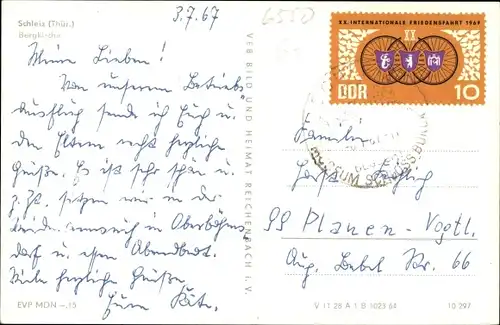 3.7.67
6550
Schleiz (Thür.)
Bergkirche
XX. INTERNATIONALE FRIEDENSFAHRT 1967
XX
DDR 10
Meine Lieben!
Von unserem Betriebs
ausflug send ich Euch u.
den Eltern recht herzliche
Grüße. Es ist sehr schön u.
z. Zt. sitzen wir in der
in Oberböhms
dorf u. essen Abendbrot.
Viele herzliche Grüße
Eure Käte.
VEB BILD UND HEIMAT REICHENBACH i. V.
Familie
99 Plauen-Vogtl.
Aug. Bebel Str. 66
EVP MDN -.15
V 11 28 A 1 B 1023 64
10 297